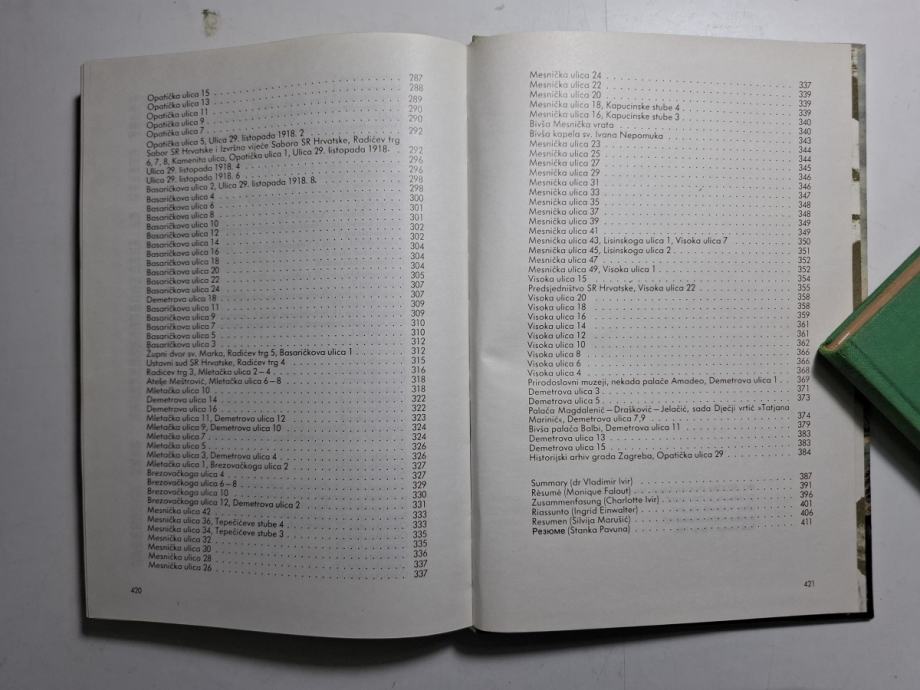 Opatička ulica 15 . . . 287
Opatička ulica 13 . . . 288
Opatička ulica 11 . . . 289
Opatička ulica 9 . . . 290
Opatička ulica 7 . . . 290
Opatička ulica 5, Ulica 29. listopada 1918. 2 . . . 292
Sabor SR Hrvatske i Izvršno vijeće Sabora SR Hrvatske, Radićev trg
6, 7, 8, Kamenita ulica, Opatička ulica 1, Ulica 29. listopada 1918. . . . 292
Ulica 29. listopada 1918. 4 . . . 296
Ulica 29. listopada 1918. 6 . . . 296
Basaričkova ulica 2, Ulica 29. listopada 1918. 8. . . . 298
Basaričkova ulica 4 . . . 298
Basaričkova ulica 6 . . . 300
Basaričkova ulica 8 . . . 301
Basaričkova ulica 10 . . . 301
Basaričkova ulica 12 . . . 302
Basaričkova ulica 14 . . . 302
Basaričkova ulica 16 . . . 304
Basaričkova ulica 18 . . . 304
Basaričkova ulica 20 . . . 304
Basaričkova ulica 22 . . . 305
Basaričkova ulica 24 . . . 307
Demetrova ulica 18 . . . 307
Basaričkova ulica 11 . . . 309
Basaričkova ulica 9 . . . 309
Basaričkova ulica 7 . . . 310
Basaričkova ulica 5 . . . 310
Basaričkova ulica 3 . . . 312
Župni dvor sv. Marka, Radićev trg 5, Basaričkova ulica 1 . . . 312
Ustavni sud SR Hrvatske, Radićev trg 4 . . . 315
Radićev trg 3, Mletačka ulica 2–4 . . . 316
Atelje Meštrović, Mletačka ulica 6–8 . . . 318
Mletačka ulica 10 . . . 318
Demetrova ulica 14 . . . 322
Demetrova ulica 16 . . . 322
Mletačka ulica 11, Demetrova ulica 12 . . . 323
Mletačka ulica 9, Demetrova ulica 10 . . . 324
Mletačka ulica 7 . . . 324
Mletačka ulica 5 . . . 326
Mletačka ulica 3, Demetrova ulica 4 . . . 326
Mletačka ulica 1, Brezovačkoga ulica 2 . . . 327
Brezovačkoga ulica 4 . . . 327
Brezovačkoga ulica 6–8 . . . 329
Brezovačkoga ulica 10 . . . 330
Brezovačkoga ulica 12, Demetrova ulica 2 . . . 331
Mesnička ulica 42 . . . 333
Mesnička ulica 36, Tepečićeve stube 4 . . . 333
Mesnička ulica 34, Tepečićeve stube 3 . . . 335
Mesnička ulica 32 . . . 335
Mesnička ulica 30 . . . 336
Mesnička ulica 28 . . . 337
Mesnička ulica 26 . . . 337
420
Mesnička ulica 24 . . . 337
Mesnička ulica 22 . . . 339
Mesnička ulica 20 . . . 339
Mesnička ulica 18, Kapucinske stube 4 . . . 339
Mesnička ulica 16, Kapucinske stube 3 . . . 340
Bivša Mesnička vrata . . . 340
Bivša kapela sv. Ivana Nepomuka . . . 343
Mesnička ulica 23 . . . 344
Mesnička ulica 25 . . . 344
Mesnička ulica 27 . . . 345
Mesnička ulica 29 . . . 346
Mesnička ulica 31 . . . 346
Mesnička ulica 33 . . . 347
Mesnička ulica 35 . . . 348
Mesnička ulica 37 . . . 348
Mesnička ulica 39 . . . 349
Mesnička ulica 41 . . . 349
Mesnička ulica 43, Lisinskoga ulica 1, Visoka ulica 7 . . . 350
Mesnička ulica 45, Lisinskoga ulica 2 . . . 351
Mesnička ulica 47 . . . 352
Mesnička ulica 49, Visoka ulica 1 . . . 352
Visoka ulica 15 . . . 354
Predsjedništvo SR Hrvatske, Visoka ulica 22 . . . 355
Visoka ulica 20 . . . 358
Visoka ulica 18 . . . 358
Visoka ulica 16 . . . 359
Visoka ulica 14 . . . 361
Visoka ulica 12 . . . 361
Visoka ulica 10 . . . 362
Visoka ulica 8 . . . 366
Visoka ulica 6 . . . 366
Visoka ulica 4 . . . 368
Prirodoslovni muzeji, nekada palače Amadeo, Demetrova ulica 1 . . . 369
Demetrova ulica 3 . . . 371
Demetrova ulica 5 . . . 373
Palača Magdalenić – Drašković – Jelačić, sada Dječji vrtić »Tatjana
Marinić«, Demetrova ulica 7,9 . . . 374
Bivša palača Balbi, Demetrova ulica 11 . . . 379
Demetrova ulica 13 . . . 383
Demetrova ulica 15 . . . 383
Historijski arhiv grada Zagreba, Opatička ulica 29 . . . 384
Summary (dr Vladimir Ivir) . . . 387
Rèsumé (Monique Falout) . . . 391
Zusammenfasung (Charlotte Ivir) . . . 396
Riassunto (Ingrid Einwalter) . . . 401
Resumen (Silvija Marušić) . . . 406
Резюме (Stanka Pavuna) . . . 411
421